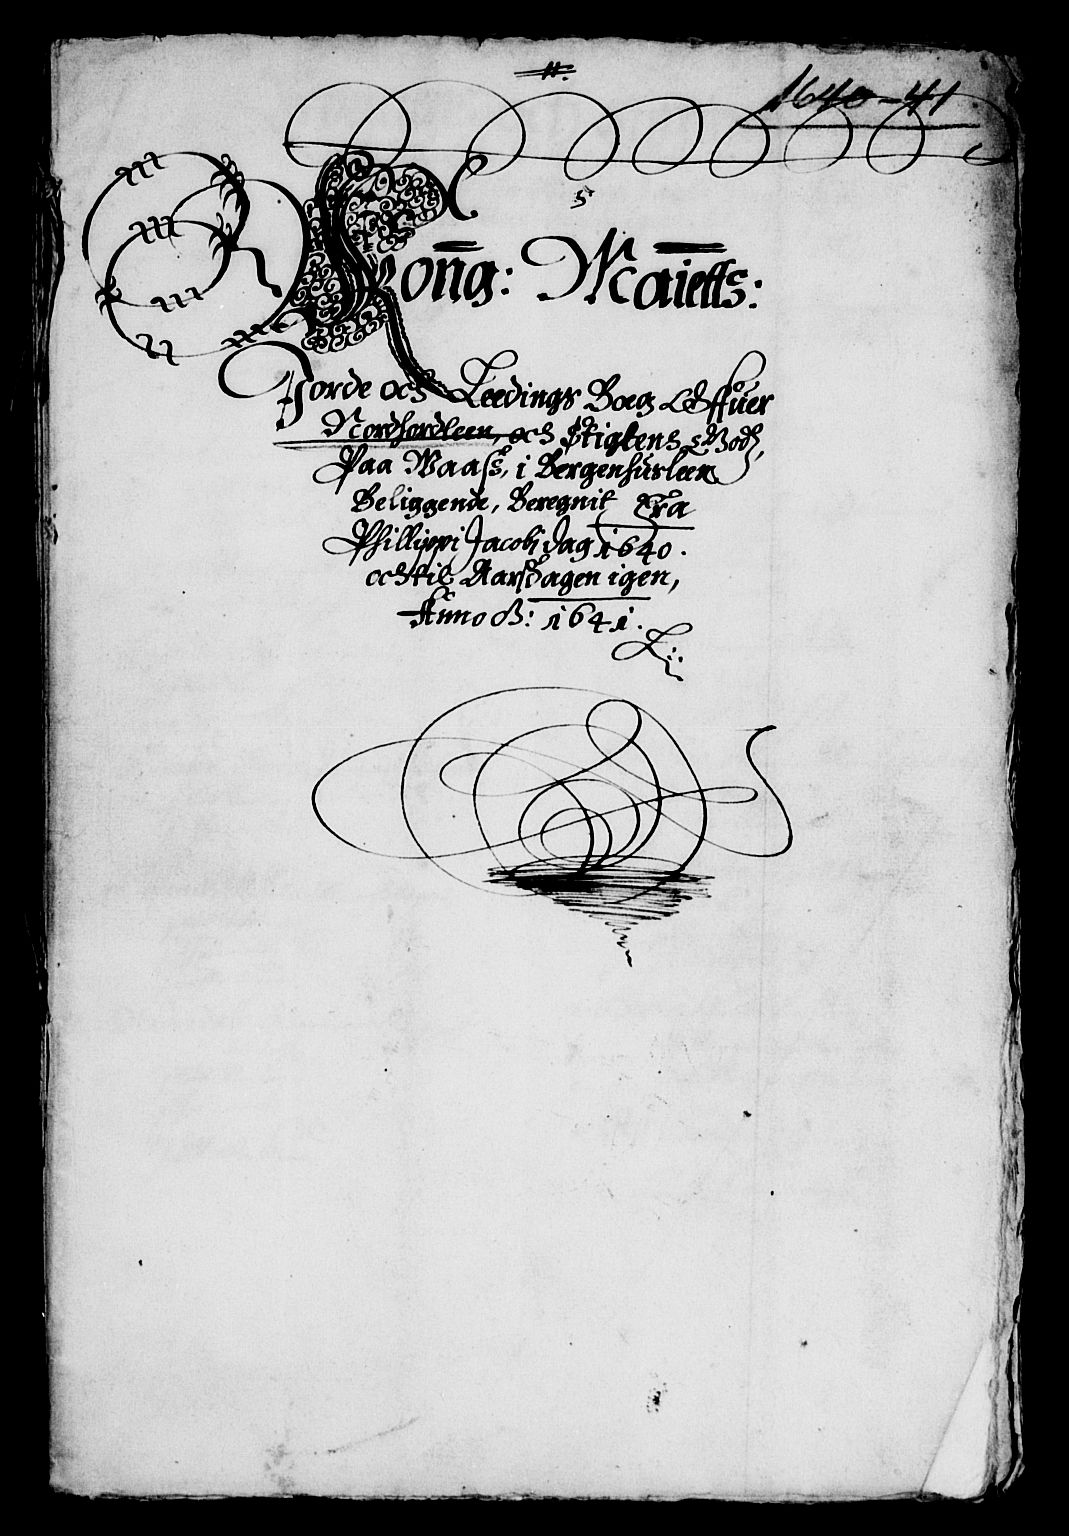 1640-41
5
Kong: Maietts:
Jorde och Leedings Boeg Offuer
Nordfordleen, och Stigtens Godß,
Paa Waaß, i Bergenhusleen
Beliggende, Beregnit Fra
Phillippi Jacobi dag 1640.
och til Aarsdagen igen,
Anno 1641.